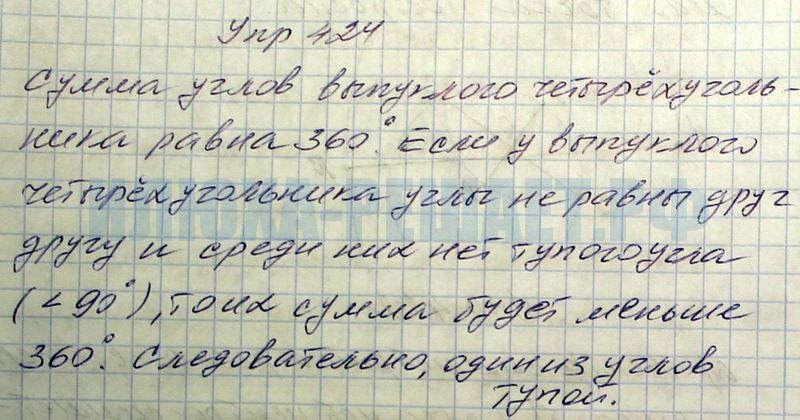 Упр 424
Сумма углов выпуклого четырёхуголь-
ника равна 360°. Если у выпуклого
четырёхугольника углы не равны друг
другу и среди них нет тупого угла
(<90°), то их сумма будет меньше
360°. Следовательно, один из углов
тупой.